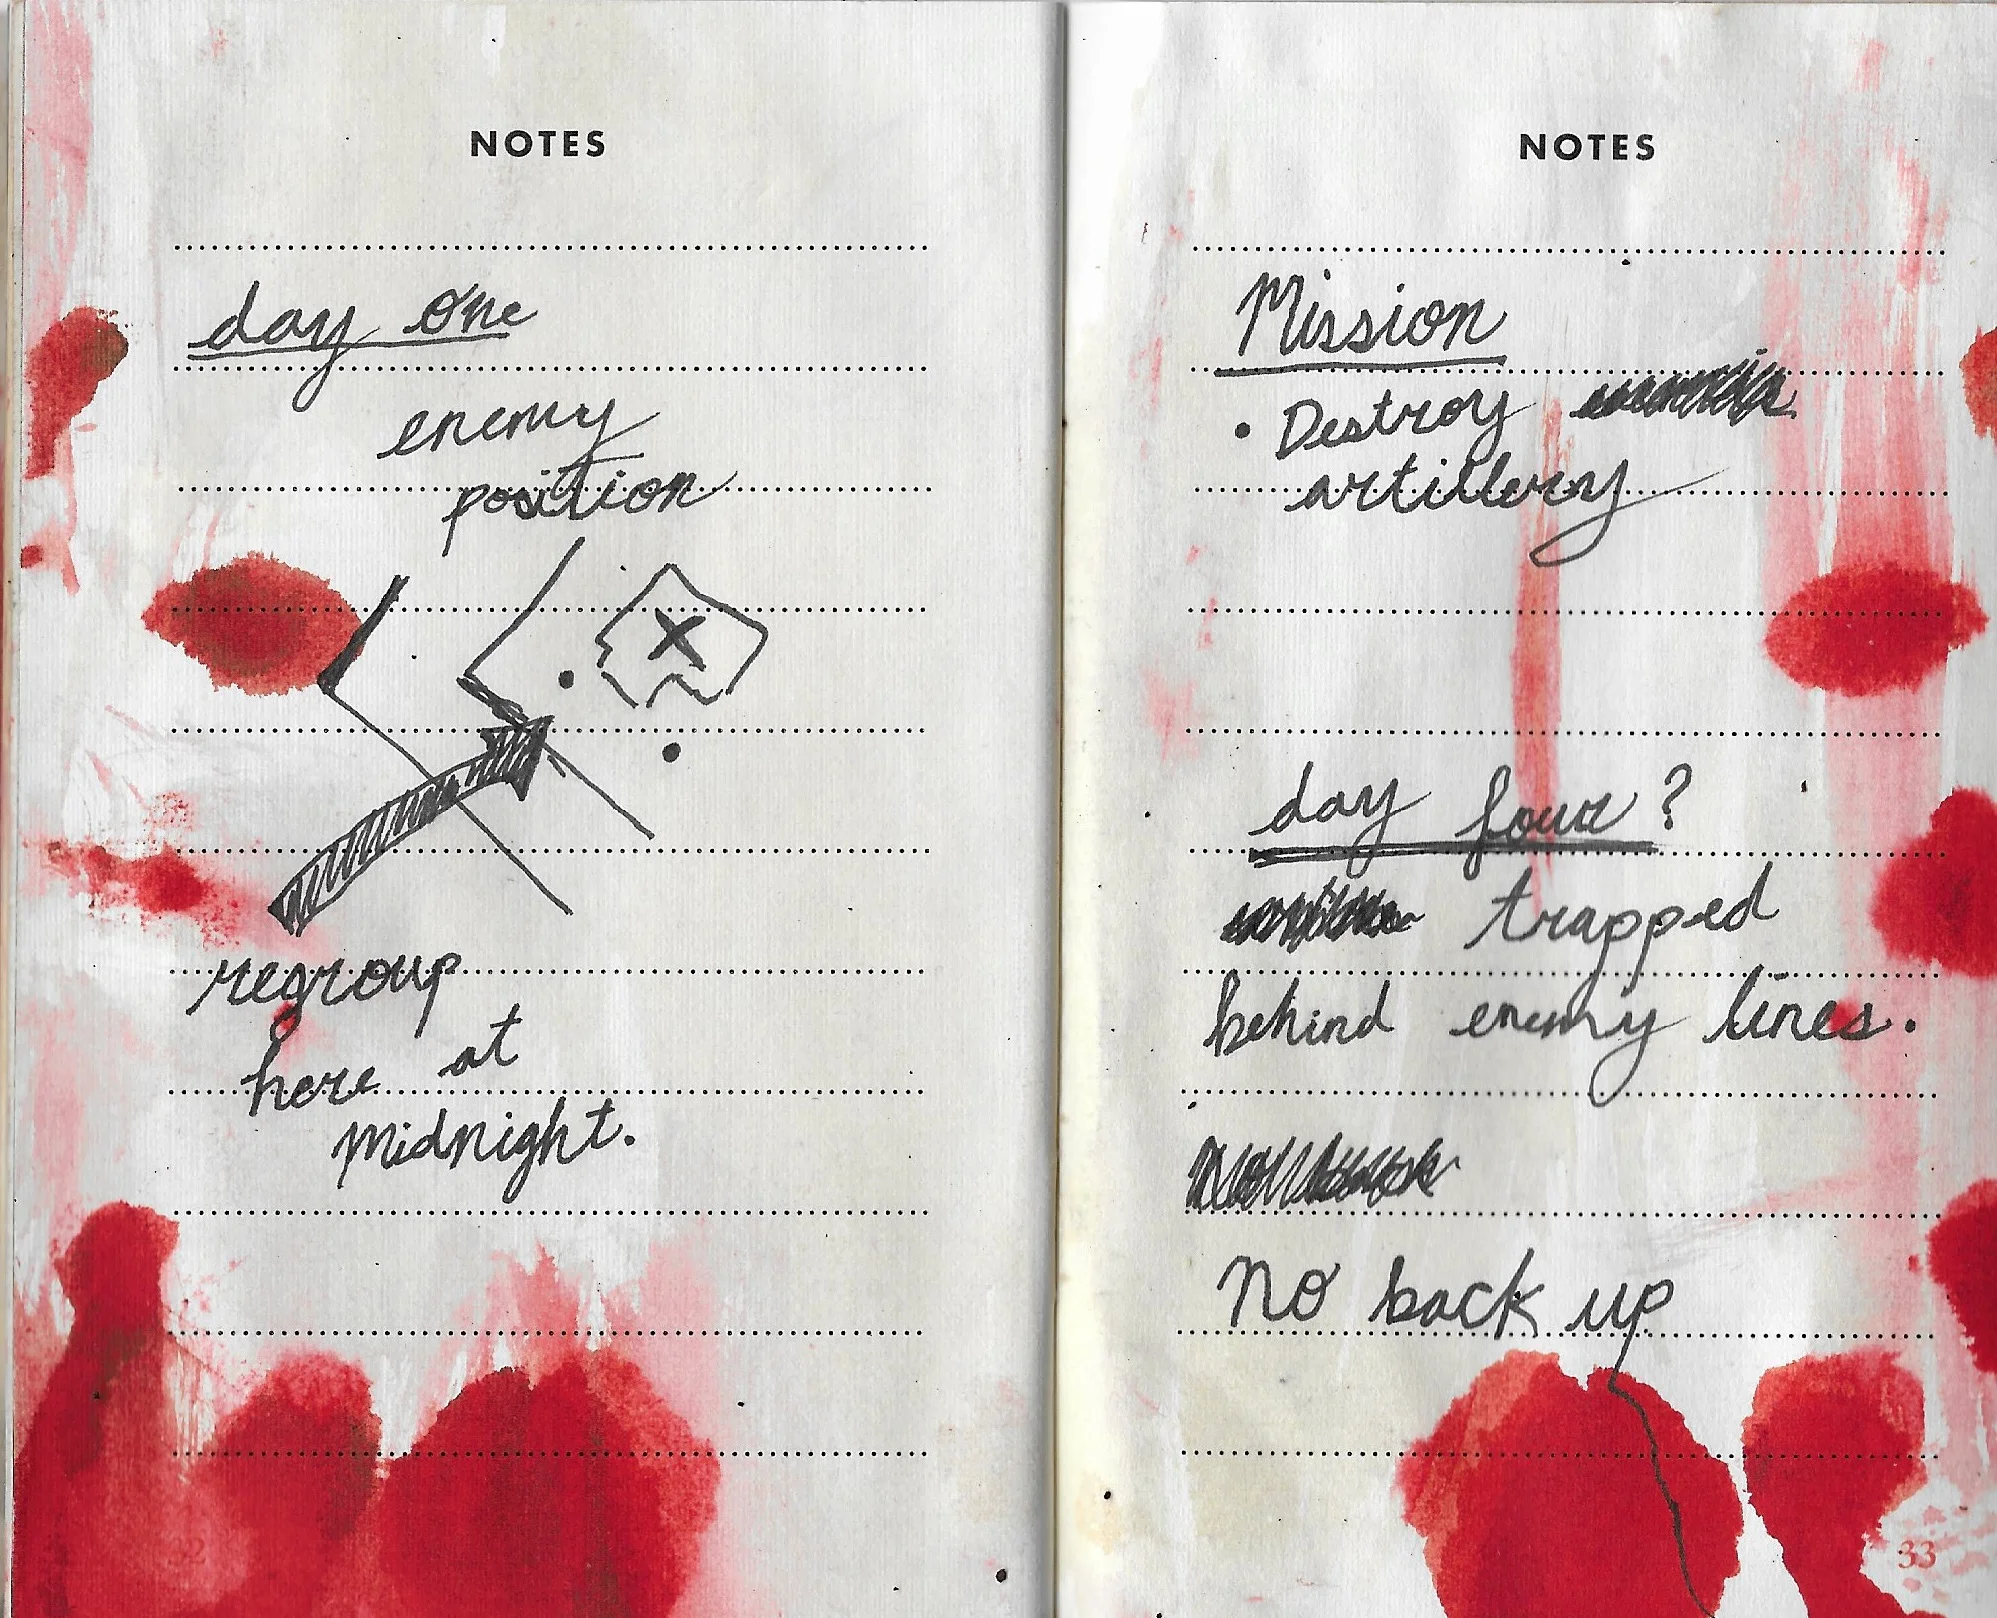 NOTES
day one
enemy
position
X
regroup
here at
midnight.
32
NOTES
Mission
• Destroy
artillery
day four?
trapped
behind enemy lines.
no back up
33